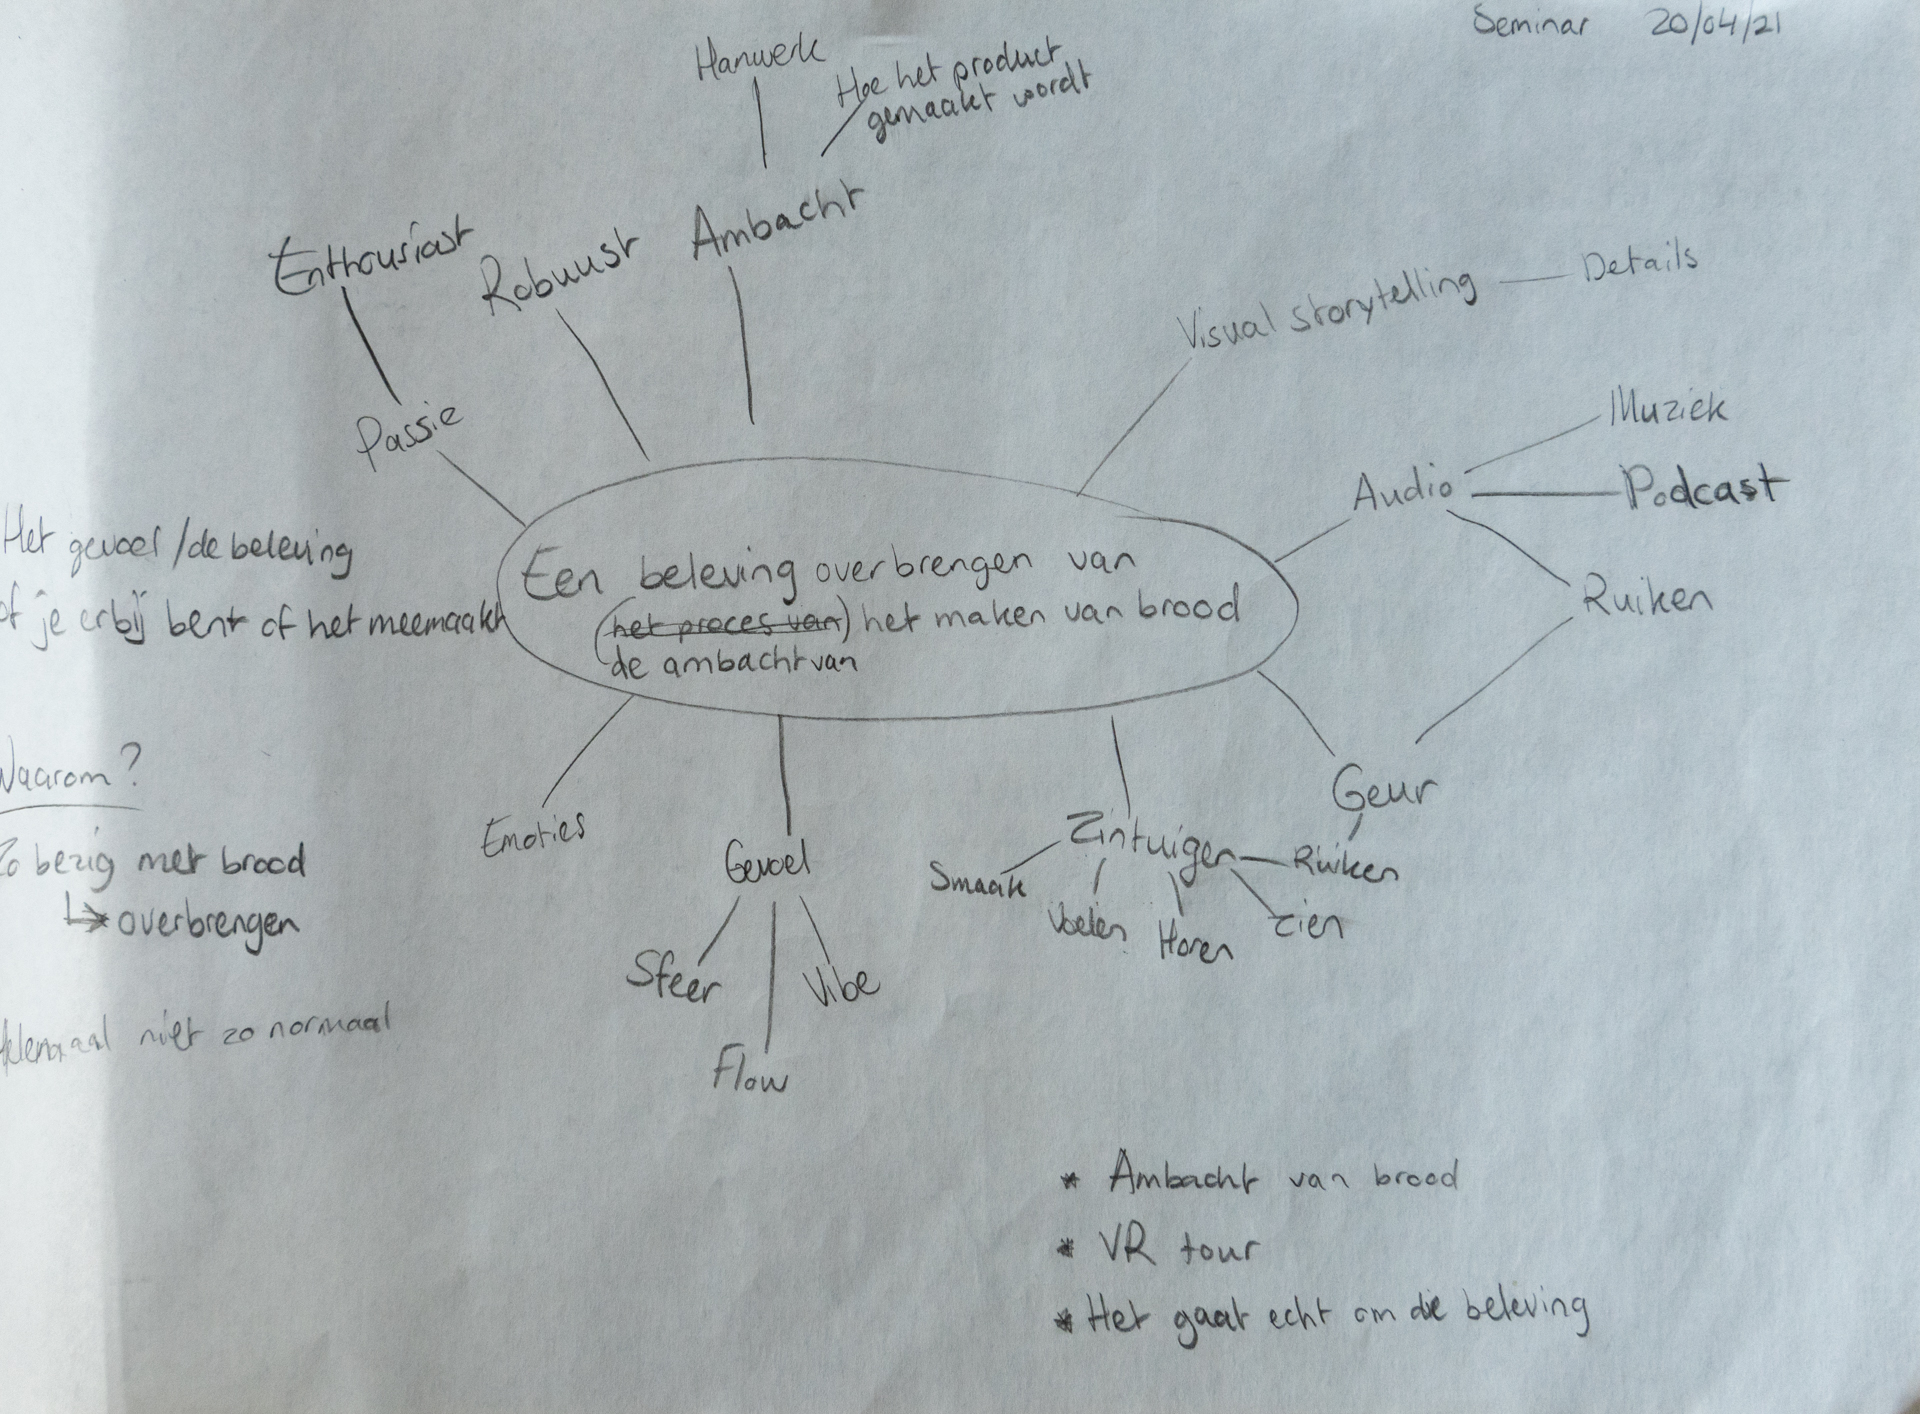 Seminar 20/04/21
Hanwerk
Hoe het product
gemaakt wordt
Ambacht
Enthousiast
Robuust
Visual storytelling
Details
Passie
Muziek
Audio
Podcast
Ruiken
Het gevoel / de beleving
of je erbij bent of het meemaakt
Een beleving overbrengen van
(het proces van) het maken van brood
de ambacht van
Waarom?
Zo bezig met brood
↳ overbrengen
Helemaal niet zo normaal
Emoties
Gevoel
Sfeer
Vibe
Flow
Geur
Zintuigen
Smaak
Voelen
Horen
Ruiken
Zien
* Ambacht van brood
* VR tour
* Het gaat echt om de beleving